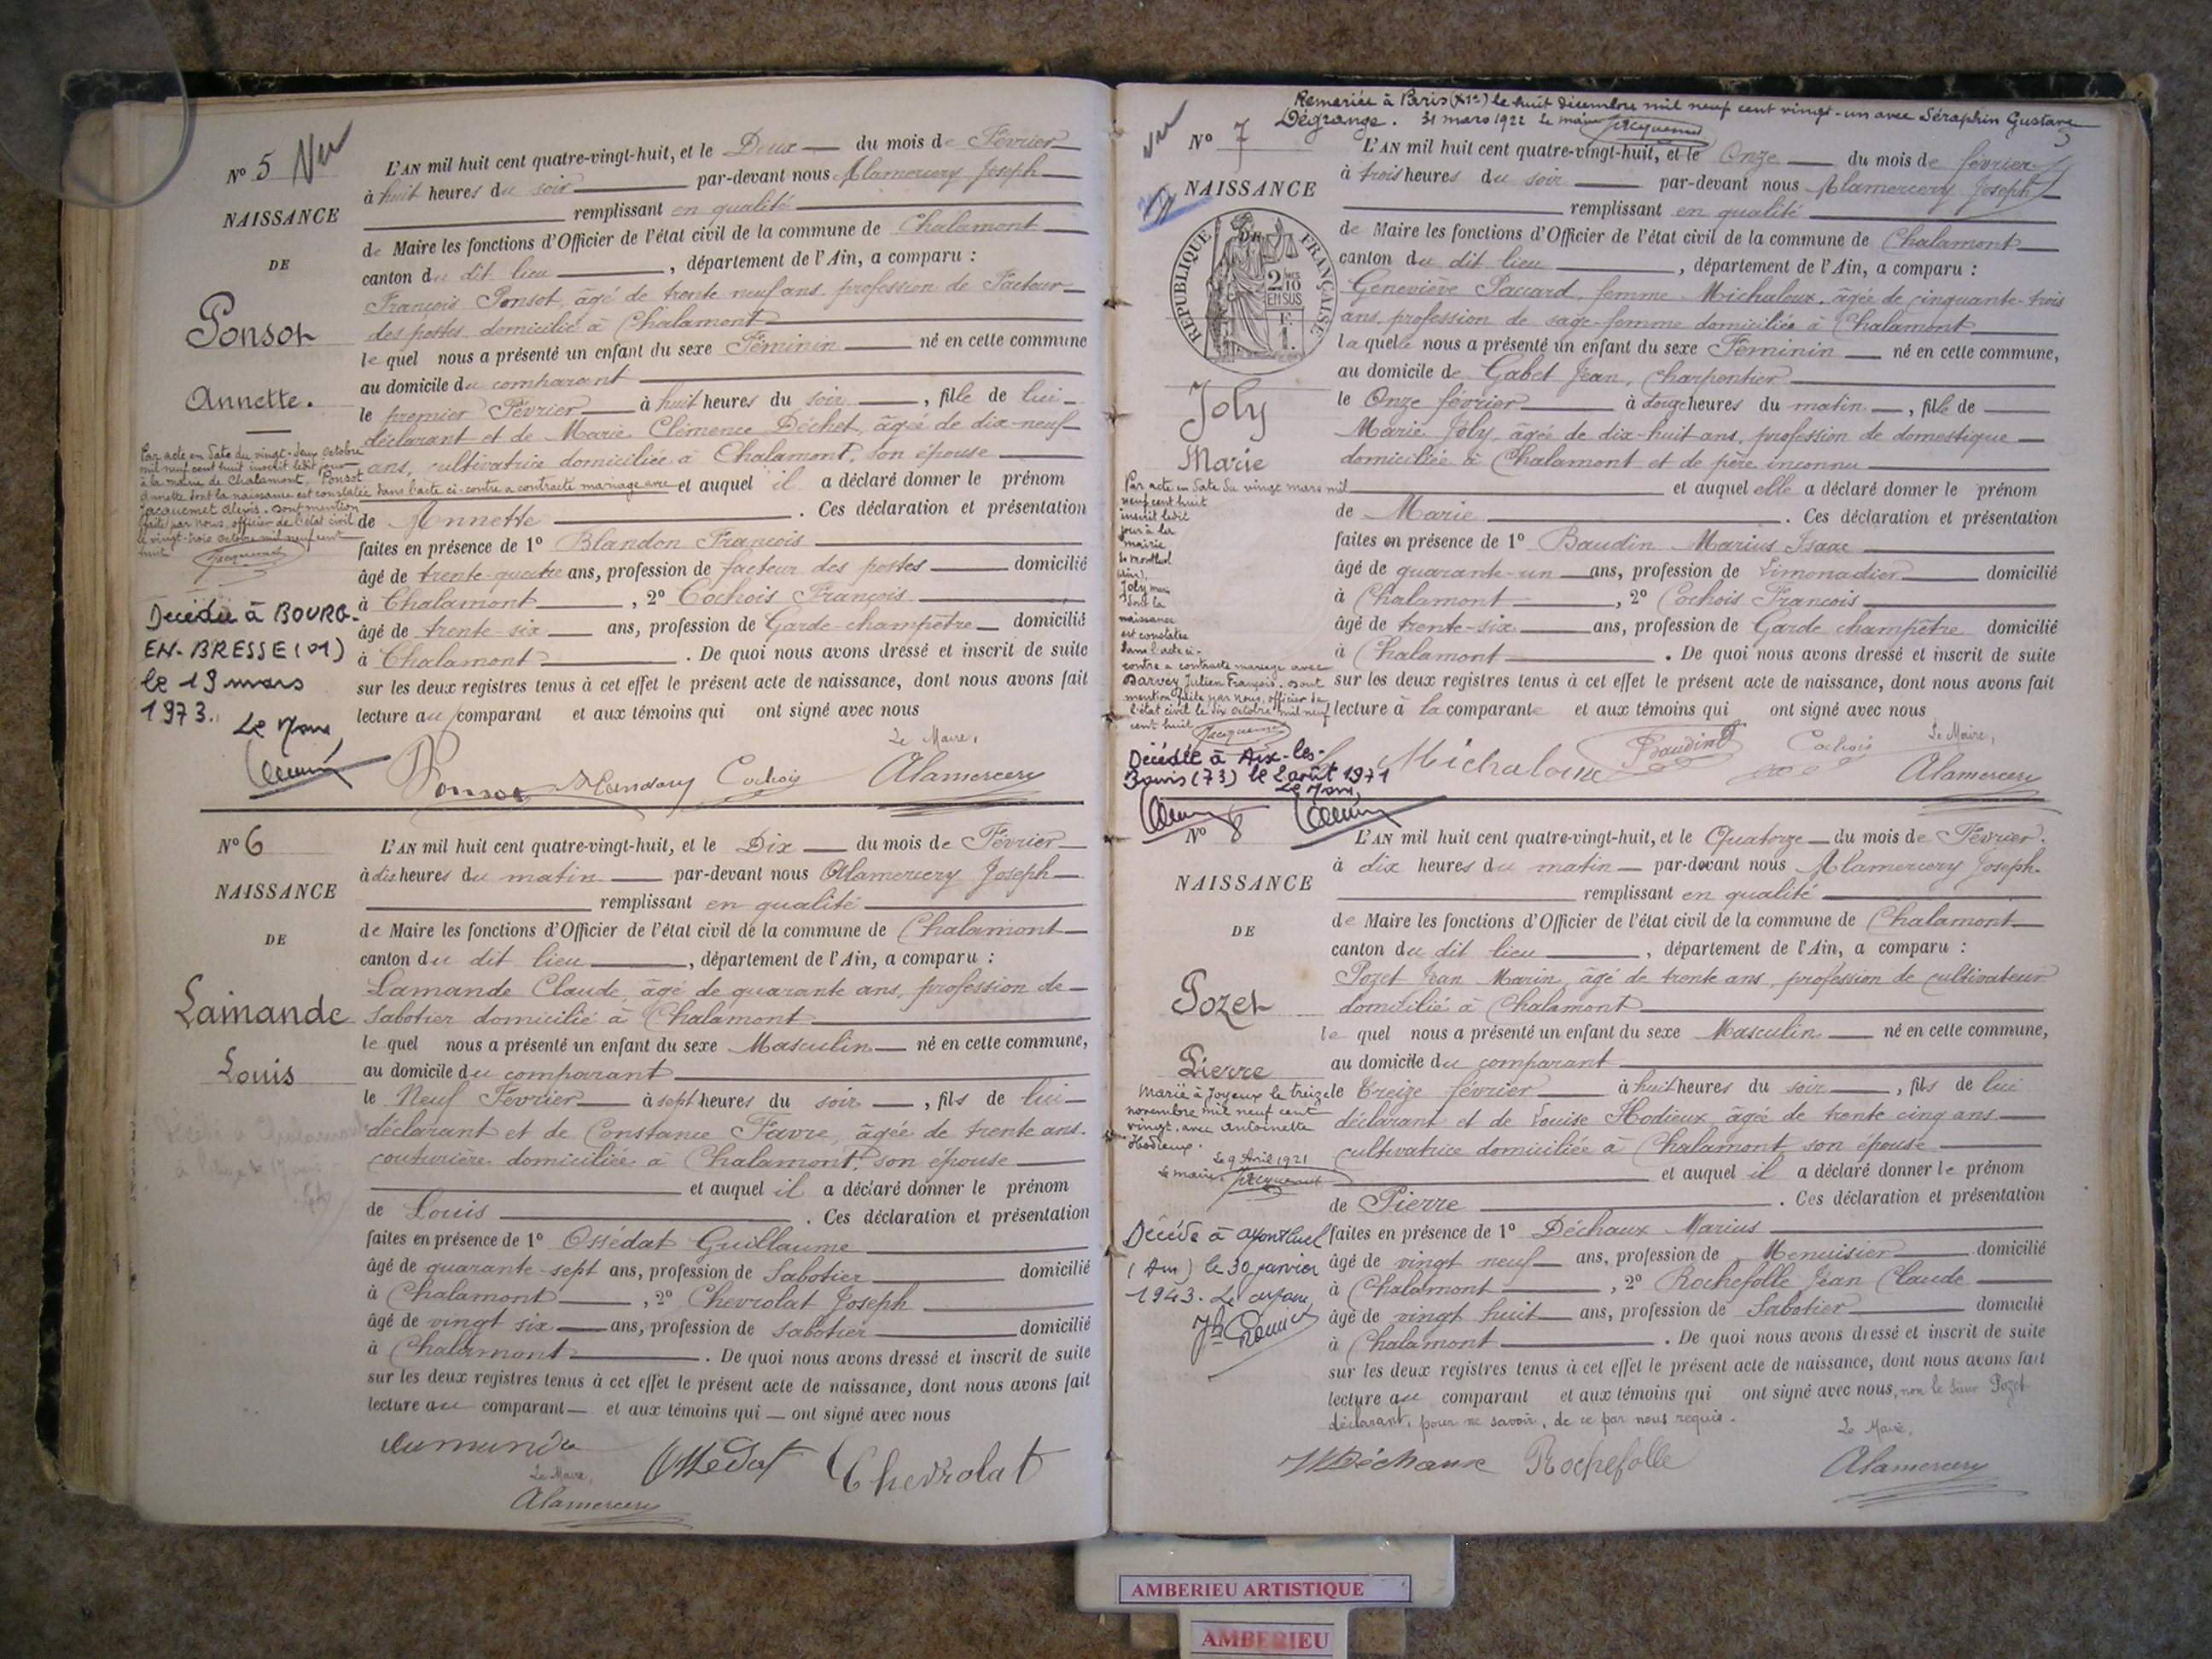 Nº 5 Vu
NAISSANCE
DE
Ponsot
Annette.
Par acte en date du vingt-deux octobre
mil neuf cent huit inscrit ledit jour
à la mairie de Chalamont, Ponsot
Annette dont la naissance est constatée dans l'acte ci-contre a contracté mariage avec
Jacquemet Alexis. Dont mention
faite par nous, officier de l'état civil
le vingt-trois octobre mil neuf cent
huit
Jacquemet
Décédée à BOURG-
EN-BRESSE (01)
le 19 mars
1973.
Le Maire,
L'AN mil huit cent quatre-vingt-huit, et le Deux du mois de Février
à huit heures du soir par-devant nous Alamercery Joseph
remplissant en qualité
de Maire les fonctions d'Officier de l'état civil de la commune de Chalamont
canton du dit lieu, département de l'Ain, a comparu :
François Ponsot, âgé de trente neuf ans, profession de Facteur
des postes domicilié à Chalamont
le quel nous a présenté un enfant du sexe Féminin né en cette commune
au domicile du comparant
le premier Février à huit heures du soir, fille de lui
déclarant et de Marie Clémence Déchet, âgée de dix-neuf
ans, cultivatrice domiciliée à Chalamont, son épouse
et auquel il a déclaré donner le prénom
de Annette. Ces déclaration et présentation
faites en présence de 1º Blandon François
âgé de trente-quatre ans, profession de facteur des postes domicilié
à Chalamont, 2º Cochois François
âgé de trente-six ans, profession de Garde-champêtre domicilié
à Chalamont. De quoi nous avons dressé et inscrit de suite
sur les deux registres tenus à cet effet le présent acte de naissance, dont nous avons fait
lecture au comparant et aux témoins qui ont signé avec nous
Le Maire,
Ponsot Blandon Cochois Alamercery
Nº 6
NAISSANCE
DE
Lamande
Louis
L'AN mil huit cent quatre-vingt-huit, et le Dix du mois de Février
à dix heures du matin par-devant nous Alamercery Joseph
remplissant en qualité
de Maire les fonctions d'Officier de l'état civil de la commune de Chalamont
canton du dit lieu, département de l'Ain, a comparu :
Lamande Claude, âgé de quarante ans, profession de
Sabotier domicilié à Chalamont
le quel nous a présenté un enfant du sexe Masculin né en cette commune,
au domicile du comparant
le Neuf Février à sept heures du soir, fils de lui
déclarant et de Constance Favre, âgée de trente ans.
couturière domiciliée à Chalamont, son épouse
et auquel il a déclaré donner le prénom
de Louis. Ces déclaration et présentation
faites en présence de 1º Ossédat Guillaume
âgé de quarante-sept ans, profession de Sabotier domicilié
à Chalamont, 2º Chevrolat Joseph
âgé de vingt six ans, profession de Sabotier domicilié
à Chalamont. De quoi nous avons dressé et inscrit de suite
sur les deux registres tenus à cet effet le présent acte de naissance, dont nous avons fait
lecture au comparant et aux témoins qui ont signé avec nous
Ossedat Chevrolat
Le Maire,
Alamercery
Remariée à Paris (XIe) le huit décembre mil neuf cent vingt-un avec Séraphin Gustave
Dégrange. 31 mars 1922 Le maire Jacquemet
3
Vu
Nº 7
NAISSANCE
DE
RÉPUBLIQUE FRANÇAISE
2 10
EN SUS
F.
1.
Joly
Marie
Par acte en date du vingt mars mil
neuf cent huit
inscrit ledit
jour à la
mairie
de Montluel
(Ain),
Joly Marie
dont la
naissance
est constatée
dans l'acte ci-
contre a contracté mariage avec
Darvey Julien François. Dont
mention faite par nous, officier de
l'état civil le dix octobre mil neuf
cent huit
Jacquemet
Décédée à Aix-les-
Bains (73) le 2 août 1971
Le Maire,
L'AN mil huit cent quatre-vingt-huit, et le Onze du mois de février
à trois heures du soir par-devant nous Alamercery Joseph
remplissant en qualité
de Maire les fonctions d'Officier de l'état civil de la commune de Chalamont
canton du dit lieu, département de l'Ain, a comparu :
Geneviève Paccard, femme Michaloux, âgée de cinquante-trois
ans, profession de sage-femme domiciliée à Chalamont
laquelle nous a présenté un enfant du sexe Féminin né en cette commune,
au domicile de Gabet Jean, Charpentier
le Onze février à douze heures du matin, fille de
Marie Joly, âgée de dix-huit ans, profession de domestique
domiciliée à Chalamont et de père inconnu
et auquel elle a déclaré donner le prénom
de Marie. Ces déclaration et présentation
faites en présence de 1º Baudin Marius Isaac
âgé de quarante-un ans, profession de Limonadier domicilié
à Chalamont, 2º Cochois François
âgé de trente-six ans, profession de Garde champêtre domicilié
à Chalamont. De quoi nous avons dressé et inscrit de suite
sur les deux registres tenus à cet effet le présent acte de naissance, dont nous avons fait
lecture à la comparante et aux témoins qui ont signé avec nous
Le Maire,
Michaloux Baudin Cochois Alamercery
Nº 8
NAISSANCE
DE
Pozet
Pierre
Marié à Joyeux le treize
novembre mil neuf cent
vingt, avec Antoinette
Hodieux.
Le 9 Avril 1921
Le maire Jacquemet
Décédé à Montluel
(Ain) le 30 janvier
1943. Le Maire,
L'AN mil huit cent quatre-vingt-huit, et le Quatorze du mois de Février.
à dix heures du matin par-devant nous Alamercery Joseph
remplissant en qualité
de Maire les fonctions d'Officier de l'état civil de la commune de Chalamont
canton du dit lieu, département de l'Ain, a comparu :
Pozet Jean Marin, âgé de trente ans, profession de cultivateur
domicilié à Chalamont
le quel nous a présenté un enfant du sexe Masculin né en cette commune,
au domicile du comparant
le treize février à huit heures du soir, fils de lui
déclarant et de Louise Hodieux, âgée de trente cinq ans
cultivatrice domiciliée à Chalamont son épouse
et auquel il a déclaré donner le prénom
de Pierre. Ces déclaration et présentation
faites en présence de 1º Déchaux Marius
âgé de vingt neuf ans, profession de Menuisier domicilié
à Chalamont, 2º Rochefolle Jean Claude
âgé de vingt huit ans, profession de Sabotier domicilié
à Chalamont. De quoi nous avons dressé et inscrit de suite
sur les deux registres tenus à cet effet le présent acte de naissance, dont nous avons fait
lecture au comparant et aux témoins qui ont signé avec nous, non le sieur Pozet
déclarant, pour ne savoir, de ce par nous requis.
Le Maire,
M Déchaux Rochefolle Alamercery
AMBERIEU ARTISTIQUE
AMBERIEU